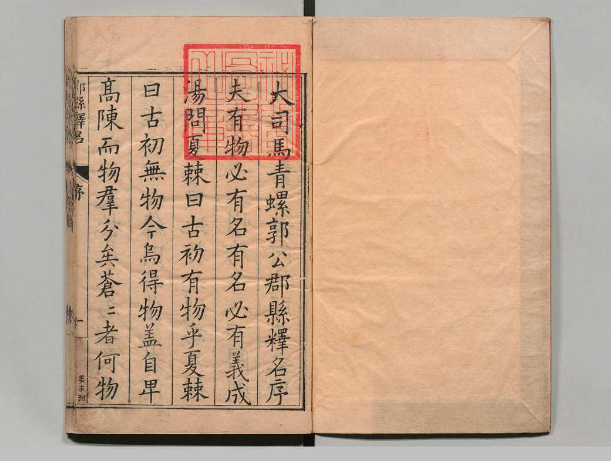 大司馬青螺郭公郡縣釋名序
夫有物必有名有名必有義成
湯問夏棘曰古初有物乎夏棘
曰古初無物今烏得物盖自卑
髙陳而物羣分矣蒼〻者何物
郡縣釋名
序
一